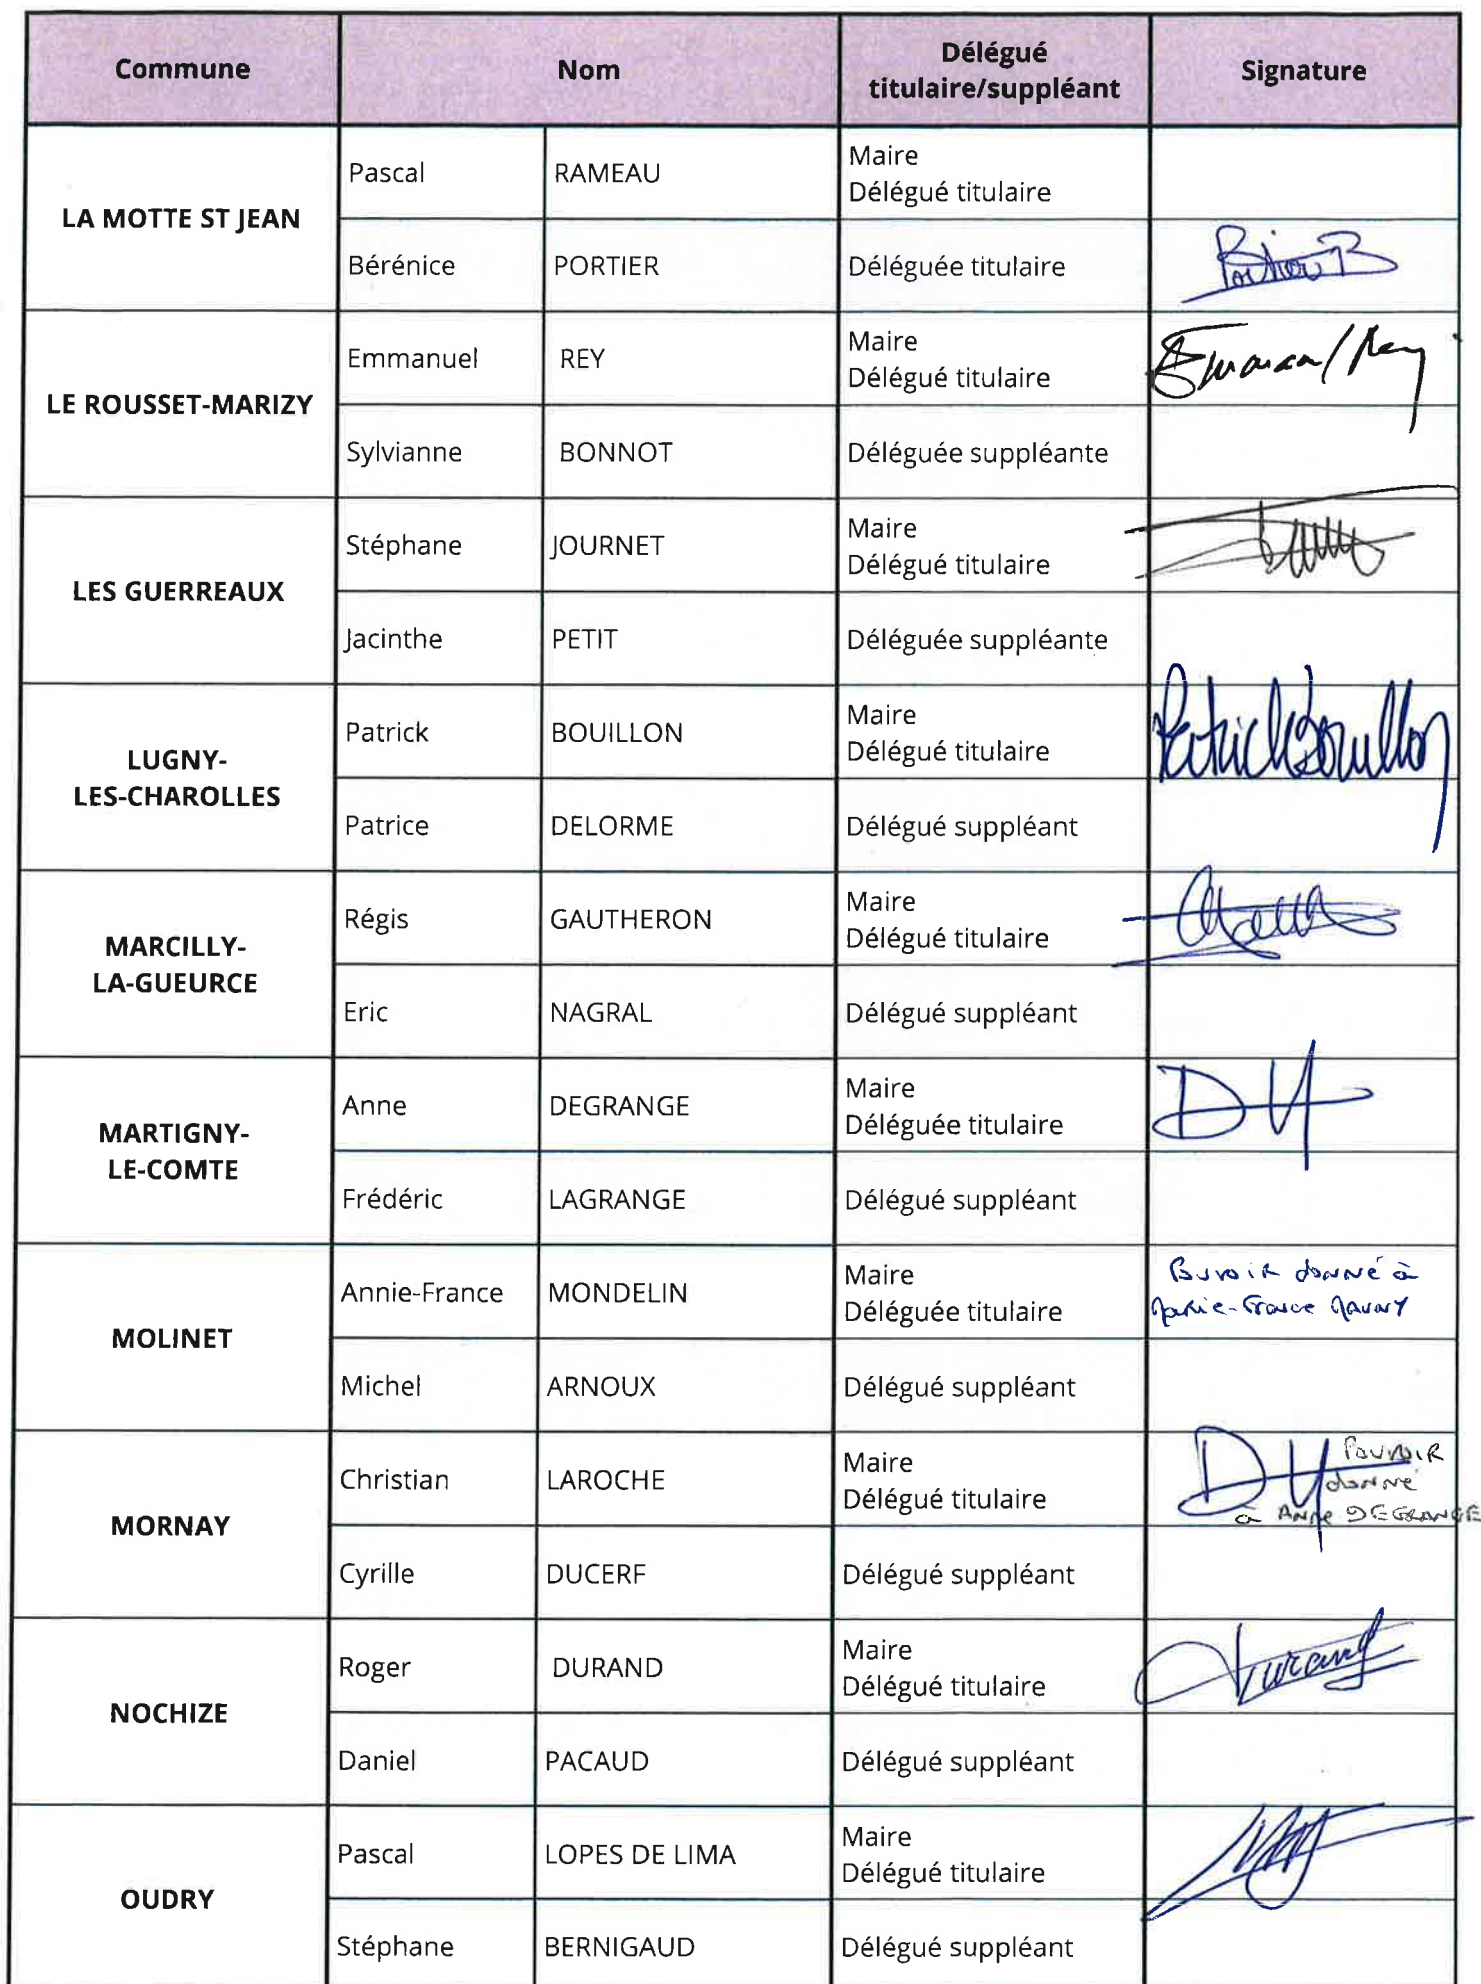 Commune Nom Délégué titulaire/suppléant Signature
LA MOTTE ST JEAN
Pascal RAMEAU Maire Délégué titulaire
Bérénice PORTIER Déléguée titulaire Portier B
LE ROUSSET-MARIZY
Emmanuel REY Maire Délégué titulaire Emmanuel Rey
Sylvianne BONNOT Déléguée suppléante
LES GUERREAUX
Stéphane JOURNET Maire Délégué titulaire
Jacinthe PETIT Déléguée suppléante
LUGNY-
LES-CHAROLLES
Patrick BOUILLON Maire Délégué titulaire Patrick Bouillon
Patrice DELORME Délégué suppléant
MARCILLY-
LA-GUEURCE
Régis GAUTHERON Maire Délégué titulaire
Eric NAGRAL Délégué suppléant
MARTIGNY-
LE-COMTE
Anne DEGRANGE Maire Déléguée titulaire
Frédéric LAGRANGE Délégué suppléant
MOLINET
Annie-France MONDELIN Maire Déléguée titulaire Pouvoir donné à Marie-France
Michel ARNOUX Délégué suppléant
MORNAY
Christian LAROCHE Maire Délégué titulaire Pouvoir donné à Anne DEGRANGE
Cyrille DUCERF Délégué suppléant
NOCHIZE
Roger DURAND Maire Délégué titulaire Durand
Daniel PACAUD Délégué suppléant
OUDRY
Pascal LOPES DE LIMA Maire Délégué titulaire
Stéphane BERNIGAUD Délégué suppléant